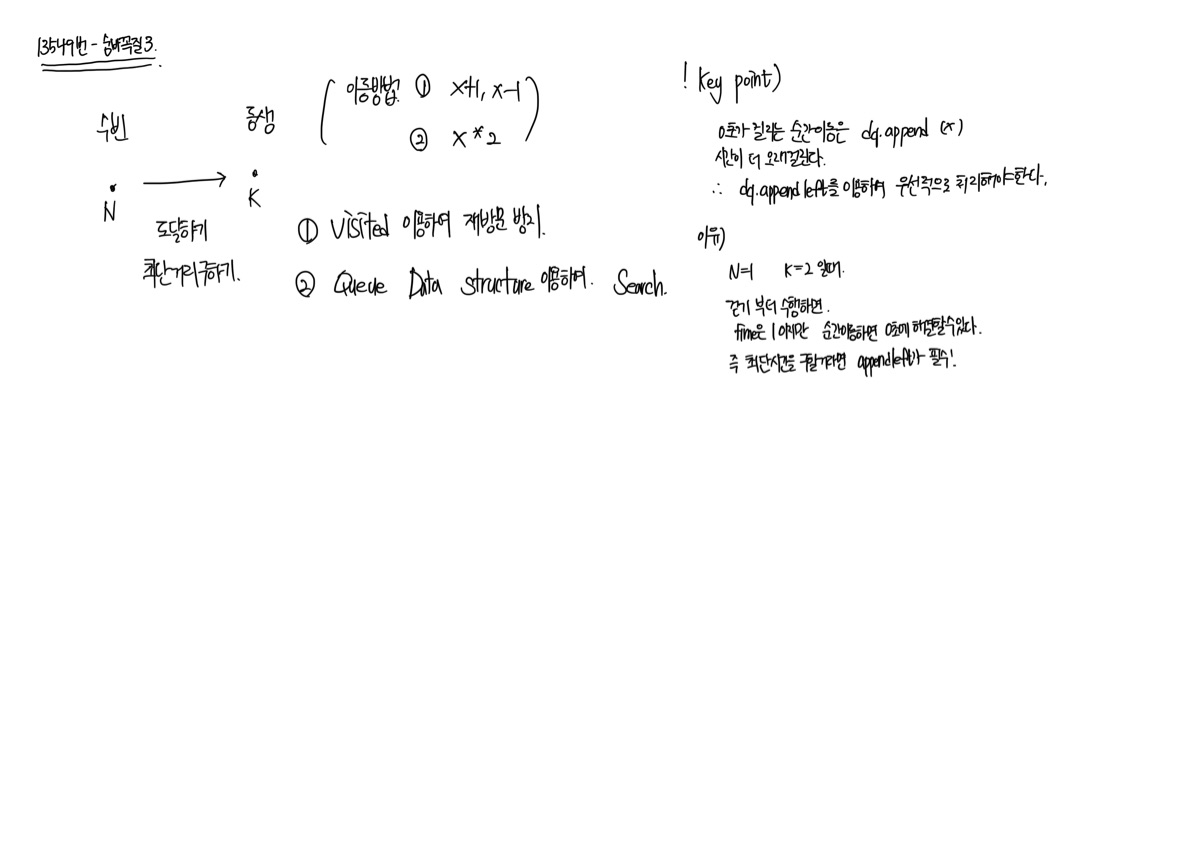 13549번 - 숨바꼭질 3.
수빈
동생
이동방법 ① x+1, x-1
② x * 2
N
K
도달하기
최단거리 구하기.
① Visited 이용하여 재방문 방지.
② Queue Data structure 이용하여. Search.
! Key point)
0초가 걸리는 순간이동은 dq.append (x)
시간이 더 오래걸린다.
∴ dq.appendleft를 이용하여 우선적으로 처리해야한다.
이유)
N=1 K=2 일때.
걷기 부터 수행하면.
time은 1 이지만 순간이동하면 0초에 해결할수있다.
즉 최단시간을 구할거라면 appendleft가 필수!